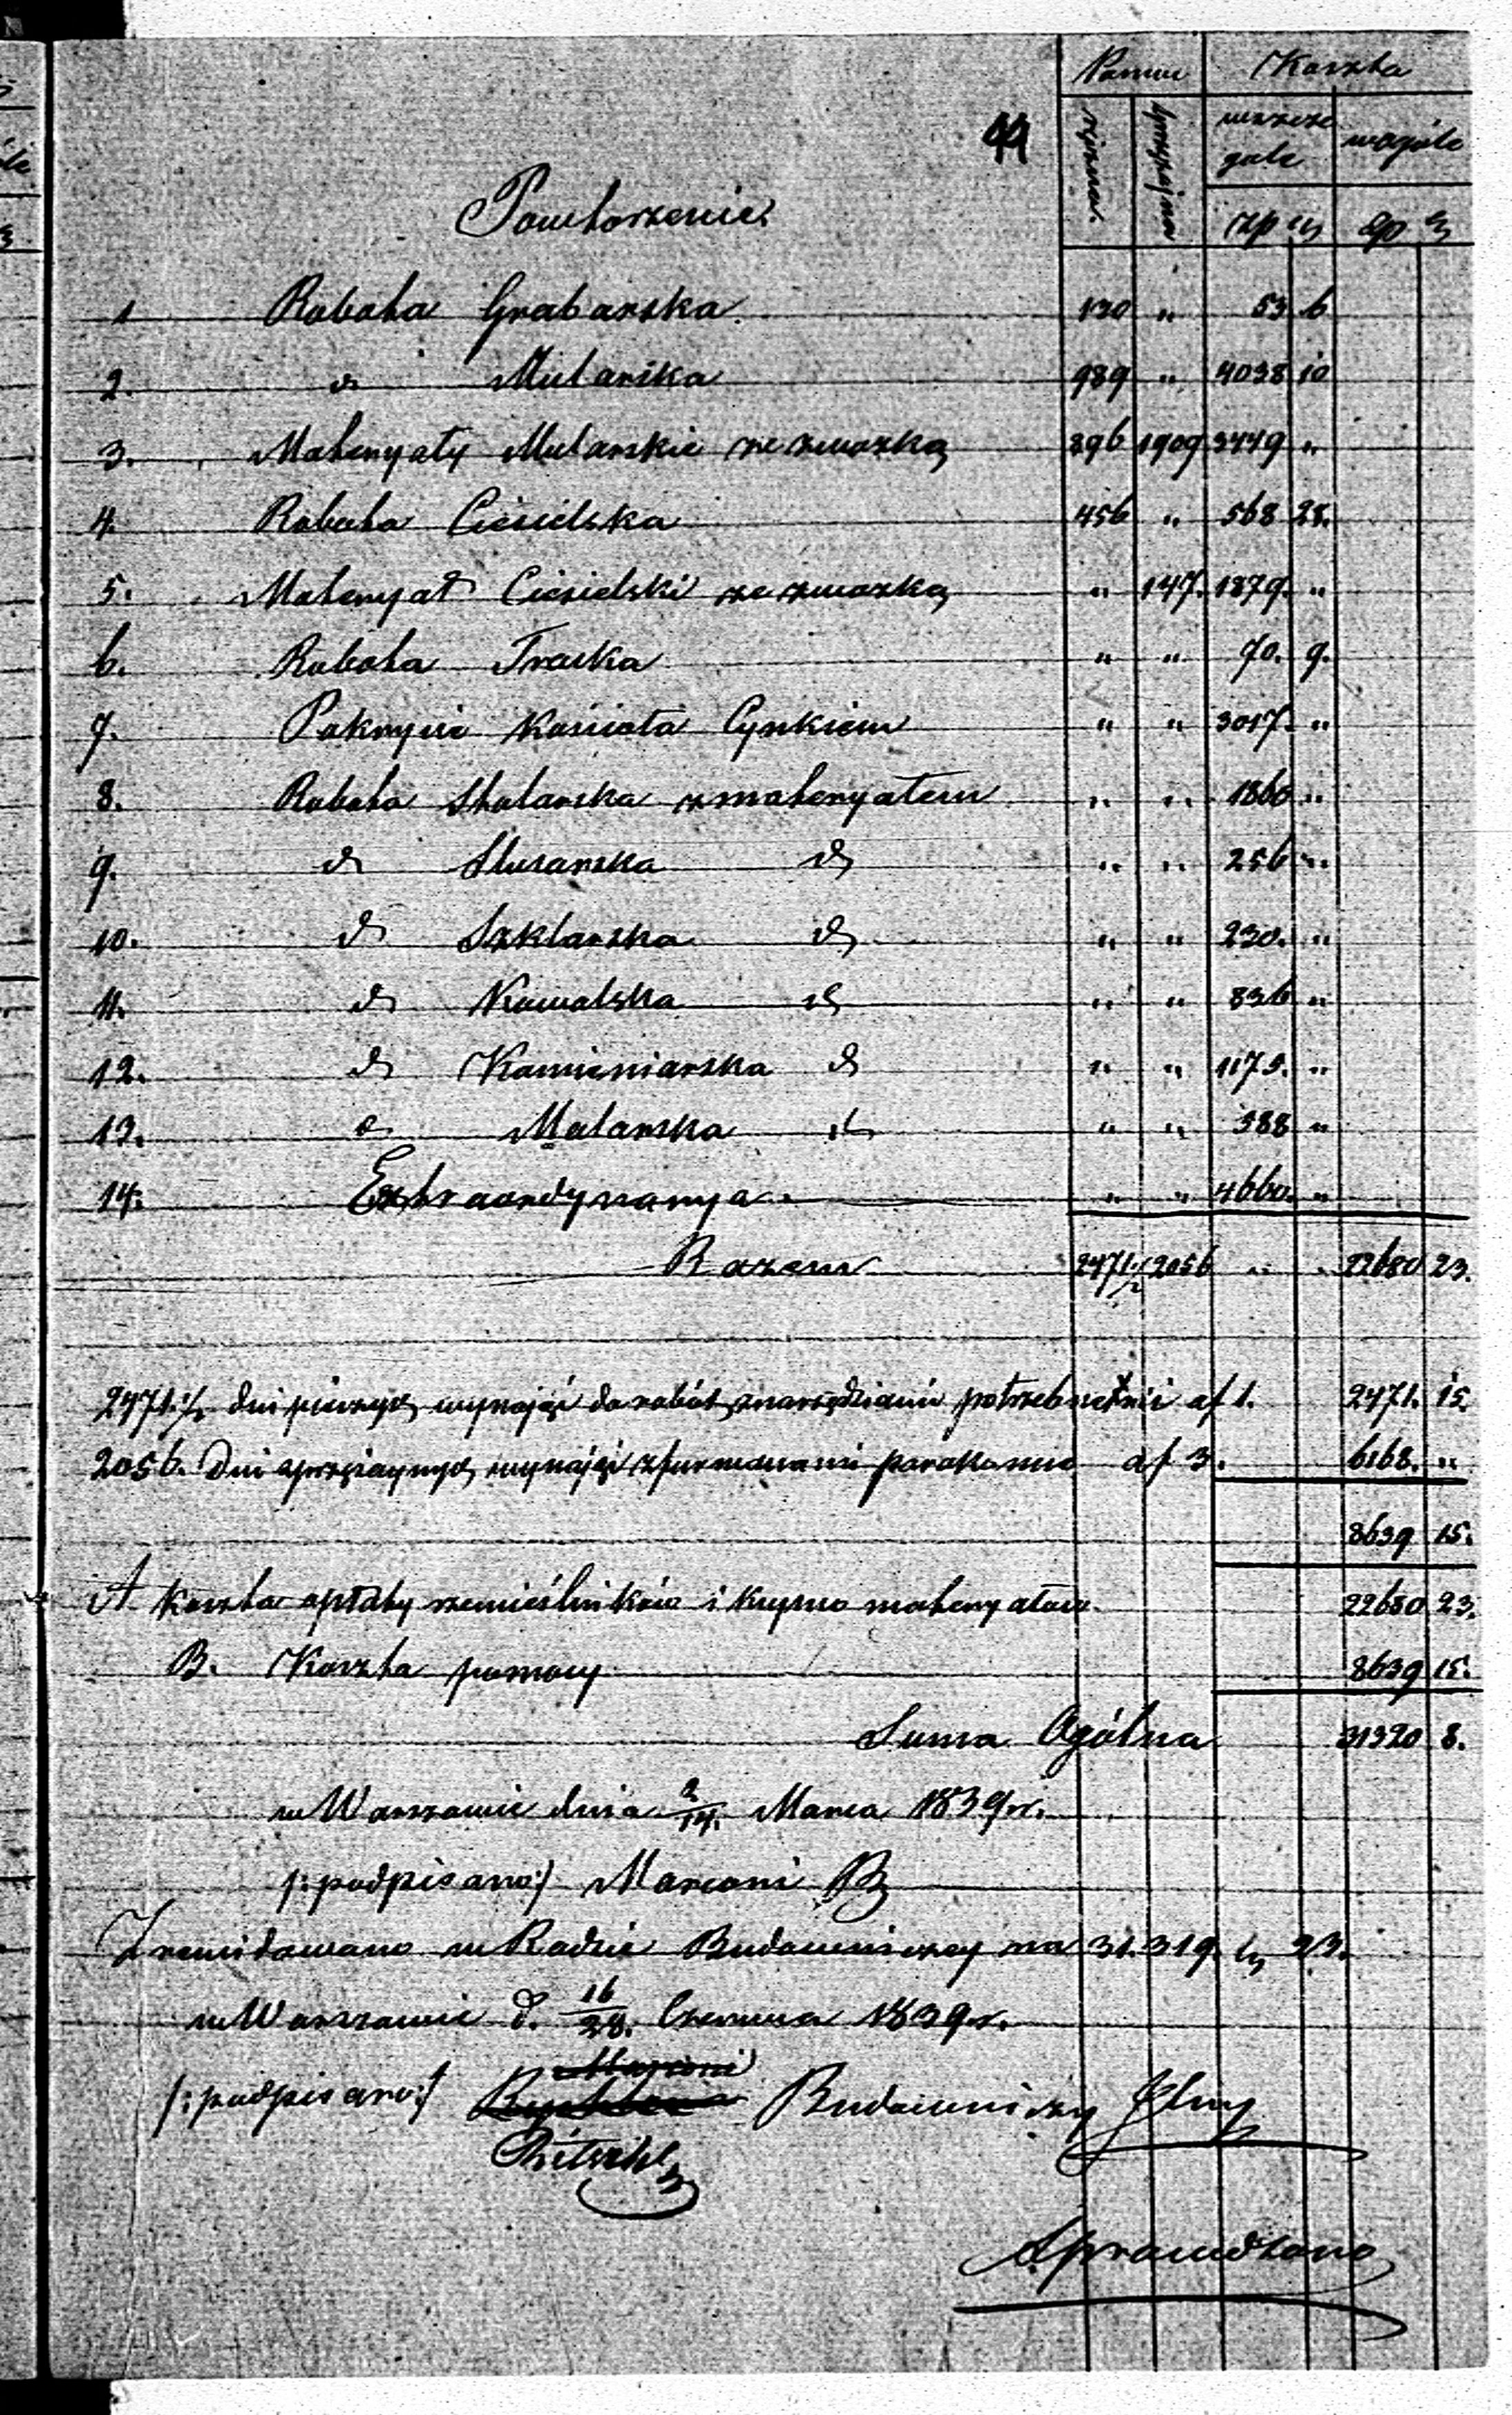 Pomoc Koszta
ręczna. sprzężajna szcze gule wogóle
44
złp gr złp gr
Powtorzenie
1 Robota Grabarska 130 " 53 6
2. d Mularska 989 " 4038 10
3. Materyały Mularskie ze zwozką 896 1909 3449 "
4. Robota Ciesielska 456 " 568 28.
5. Materyał Ciesielski ze zwozką " 147. 1879. "
6. Robota Tracka " " 70. 9.
7. Pokrycie Kościoła Cynkiem " " 3017. "
8. Robota Stolarska z materyałem " " 1860 "
9. d Slusarska d " " 256 "
10. d Szklarska d " " 230. "
11. d Kowalska d " " 836 "
12. d Kamieniarska d " " 1175. "
13. d Malarska d " " 388 "
14. Extraordynarya. " " 4660. "
Razem 2471 1/2 2056 " " 22680 23.
2471 1/2 dni pieszych wynająć do robót z narzędziami potrzebnemi af 1. 2471. 15.
2056. Dni sprzężajnych wynająć z furmanami parokonne af 3. 6168. "
8639 15.
A Koszta opłaty rzemieślników i kupno materyałow 22680 23.
B. Koszta pomocy 8639 15.
Suma Ogólna 31320 8.
w Warszawie dnia 2/14. Marca 1839 r.
/:podpisano:/ Marconi B
Zrewidowano w Radzie Budowniczey na 31.319. gr 23.
w Warszawie d. 16/28. Czerwca 1839 r.
Marconi
/:podpisano:/ Budowniczy Jlny
Ritschel
Sprawdzono